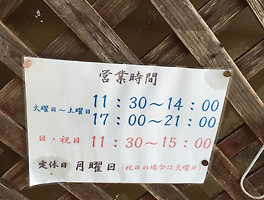 営業時間
火曜日～土曜日 11：30～14：00
17：00～21：00
日・祝日 11：30～15：00
定休日 月曜日（祝日の場合は火曜日）